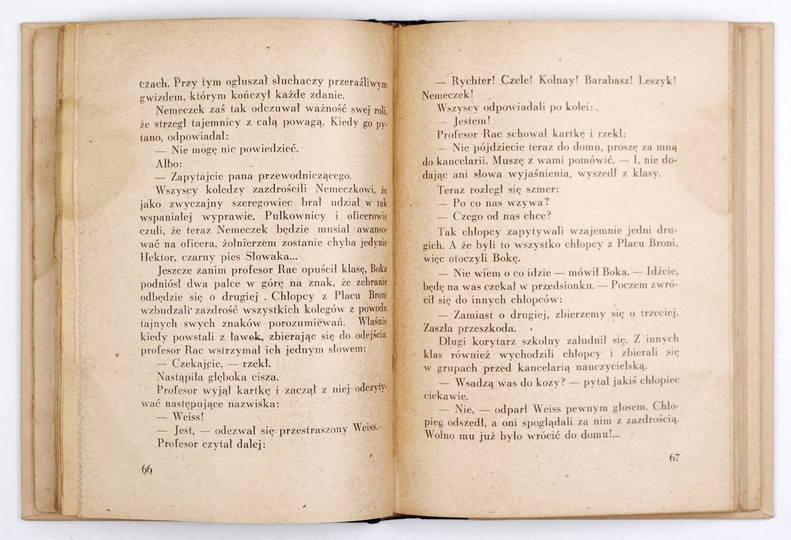 czach. Przy tym ogłuszał słuchaczy przeraźliwym
gwizdem, którym kończył każde zdanie.
Nemeczek zaś tak odczuwał ważność swej roli,
że strzegł tajemnicy z całą powagą. Kiedy go py-
tano, odpowiadał:
— Nie mogę nic powiedzieć.
Albo:
— Zapytajcie pana przewodniczącego.
Wszyscy koledzy zazdrościli Nemeczkowi, że
jako zwyczajny szeregowiec brał udział w tak
wspaniałej wyprawie. Pułkownicy i oficerowie
czuli, że teraz Nemeczek będzie musiał awanso-
wać na oficera, żołnierzem zostanie chyba jedynie
Hektor, czarny pies Słowaka...
Jeszcze zanim profesor Rac opuścił klasę, Boka
podniósł dwa palce w górę na znak, że zebranie
odbędzie się o drugiej . Chłopcy z Placu Broni
wzbudzali zazdrość wszystkich kolegów z powodu
tajnych swych znaków porozumiewań. Właśnie
kiedy powstali z ławek, zbierając się do odejścia,
profesor Rac wstrzymał ich jednym słowem:
— Czekajcie, — rzekł.
Nastąpiła głęboka cisza.
Profesor wyjął kartkę i zaczął z niej odczyty-
wać następujące nazwiska:
— Weiss!
— Jest, — odezwał się przestraszony Weiss.
Profesor czytał dalej:
66
— Rychter! Czele! Kolnay! Barabasz! Leszyk!
Nemeczek!
Wszyscy odpowiadali po kolei:
— Jestem!
Profesor Rac schował kartkę i rzekł:
— Nie pójdziecie teraz do domu, proszę za mną
do kancelarii. Muszę z wami pomówić. — I, nie do-
dając ani słowa wyjaśnienia, wyszedł z klasy.
Teraz rozległ się szmer:
— Po co nas wzywa?
— Czego od nas chce?
Tak chłopcy zapytywali wzajemnie jedni dru-
gich. A że byli to wszystko chłopcy z Placu Broni,
więc otoczyli Bokę.
— Nie wiem o co idzie — mówił Boka. — Idźcie,
będę na was czekał w przedsionku. — Poczem zwró-
cił się do innych chłopców:
— Zamiast o drugiej, zbierzemy się o trzeciej.
Zaszła przeszkoda.
Długi korytarz szkolny zaludnił się. Z innych
klas również wychodzili chłopcy i zbierali się
w grupach przed kancelarią nauczycielską.
— Wsadzą was do kozy? — pytał jakiś chłopiec
ciekawie.
— Nie, — odparł Weiss pewnym głosem. Chło-
piec odszedł, a oni spoglądali za nim z zazdrością.
Wolno mu już było wrócić do domu!...
67